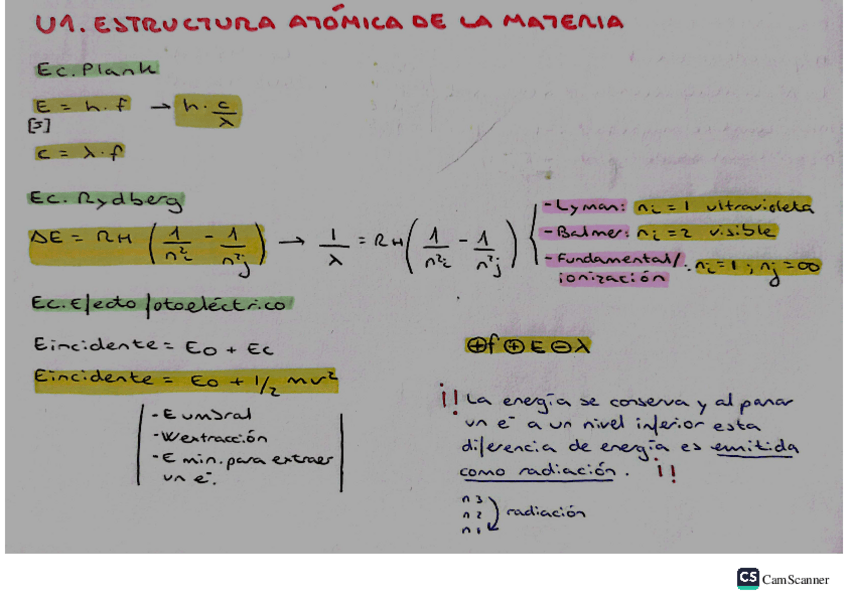 U1. ESTRUCTURA ATÓMICA DE LA MATERIA
Ec. Plank
E = h · f → h · c/λ
[J]
c = λ · f
Ec. Rydberg
ΔE = RH (1/n²i - 1/n²j) → 1/λ = RH (1/n²i - 1/n²j)
- Lyman: ni = 1 ultravioleta
- Balmer: ni = 2 visible
- Fundamental/
ionización : ni = 1 ; nj = ∞
Ec. Efecto fotoeléctrico
Eincidente = Eo + Ec
Eincidente = Eo + 1/2 mv²
- E umbral
- Wextracción
- E min. para extraer
un e⁻.
⊕f ⊕E ⊖λ
¡¡ La energía se conserva y al pasar
un e⁻ a un nivel inferior esta
diferencia de energía es emitida
como radiación. !!
n3
n2 radiación
n1
CS CamScanner